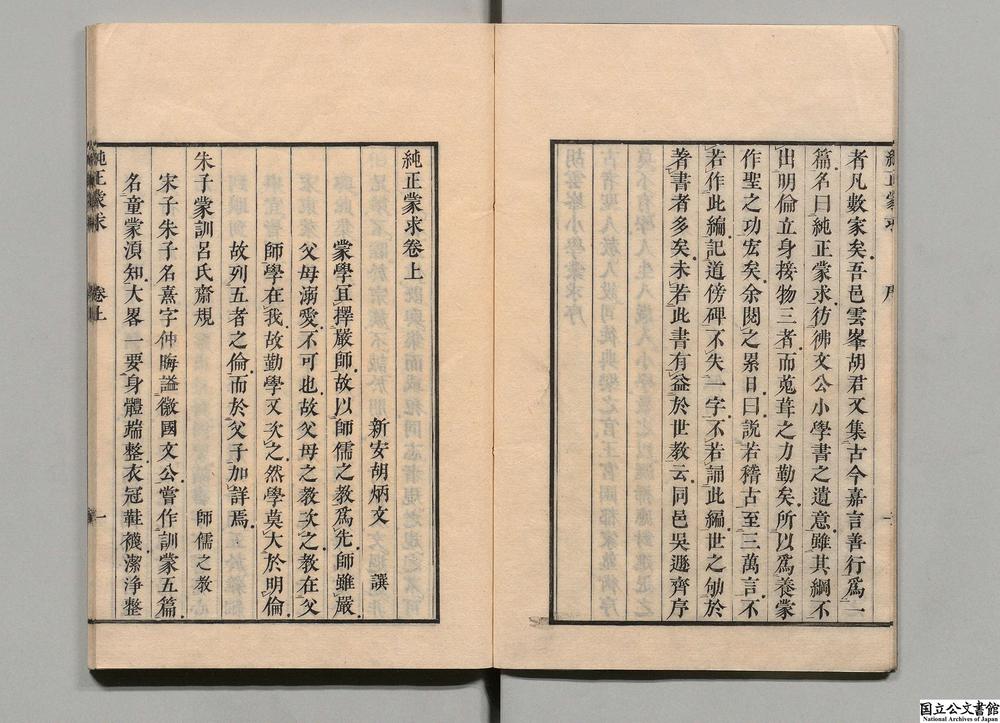 純正蒙求 序
者凡數家矣吾邑雲峯胡君又集古今嘉言善行爲一
篇名曰純正蒙求彷彿文公小學書之遺意雖其綱不
出明倫立身接物三者而蒐葺之力勤矣所以爲養蒙
作聖之功宏矣余閱之累日曰說若稽古至三萬言不
若作此編記道傍碑不失一字不若誦此編世之劬於
著書者多矣未若此書有益於世教云同邑吳遯齊序
純正蒙求卷上
新安胡炳文 譔
蒙學宜擇嚴師故以師儒之教爲先師雖嚴
父母溺愛不可也故父母之教次之教在父
師學在我故勤學又次之然學莫大於明倫
故列五者之倫而於父子加詳焉
朱子蒙訓呂氏齋規 師儒之教
宋子朱子名熹字仲晦謚徽國文公嘗作訓蒙五篇
名童蒙湏知大畧一要身體端整衣冠鞋襪潔淨整
純正蒙求 卷上 一
国立公文書館
National Archives of Japan